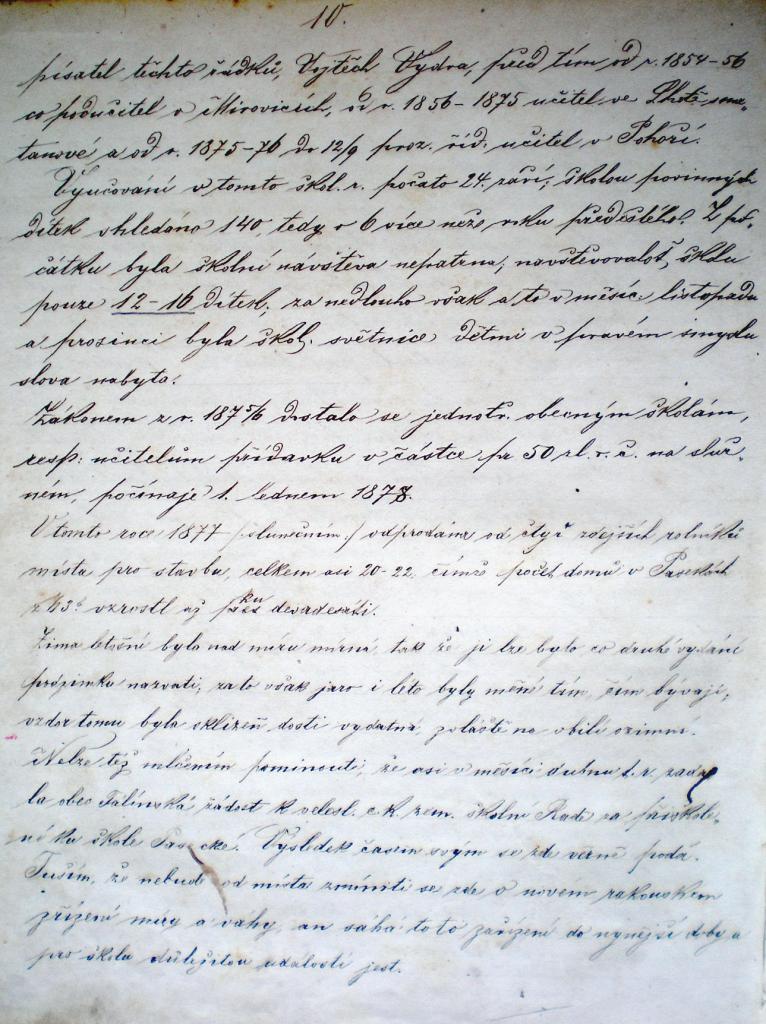 10.
písatel těchto řádků, Vojtěch Vydra, před tím od r. 1854-56
co podučitel v Mirovicích, od r. 1856-1875 učitel ve Lhotě sme-
tanové a od r. 1875-76 do 12/9 proz. říd. učitel v Pohoří.
Vyučování v tomto škol. r. počato 24. září, školou povinných
dítek shledáno 140, tedy o 6 více néže roku předešlého. Z po-
čátku byla školní návštěva nepatrna, navštěvovaloť školu
pouze 12-16 dítek, za nedlouho však a to v měsíci listopadu
a prosinci byla škol. světnice dětmi v pravém smyslu
slova nabyta.
Zákonem z r. 1875/6 dostalo se jednotř. obecným školám,
resp. učitelům přídavku v částce po 50 zl. r. č. na služ-
ném, počínaje 1. lednem 1878.
V tomto roce 1877 /: slunečním :/ odprodána od čtyř zdejších rolníků
místa pro stavbu, celkem asi 20-22, čímž počet domů v Pasekách
z 43 vzrostl až přes devadesáti.
ku
Zima letošní byla nad míru mírná, tak že ji lze bylo co druhé vydání
podzimku nazvati, za to však jaro i léto byly méně tím, čím bývají,
vzdor tomu byla sklizeň dosti vydatná, zvláště na obilí ozimní.
Nelze též mlčením pominouti, že asi v měsíci dubnu t. r. zada-
la obec Talínská žádost k velesl. c. k. zem. školní Radě za přiškole-
ní ku škole Pasecké. Výsledek časem svým se zde věrně podá.
Tuším, že nebude od místa zmíniti se zde o novém rakouském
zřízení míry a váhy, an sáhá toto zařízení do nynější doby a
pro školu důležitou událostí jest.